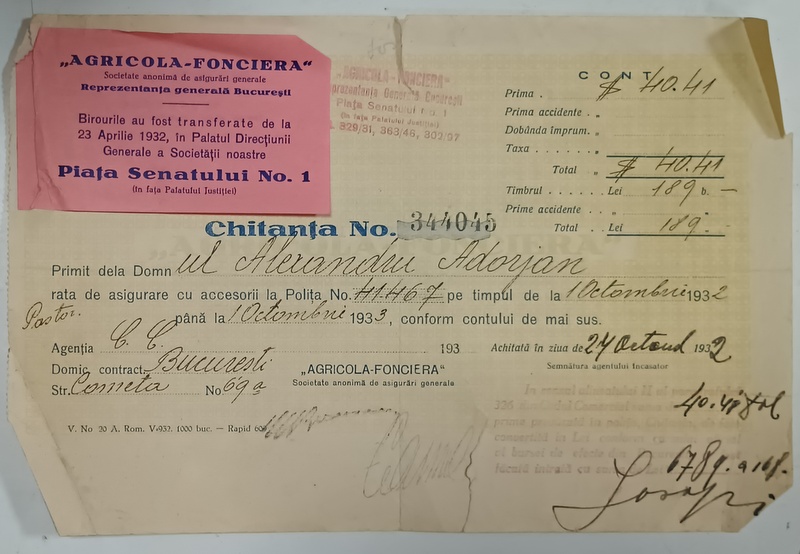 „AGRICOLA-FONCIERA“
Societate anonimă de asigurări generale
Reprezentanța generală București
Birourile au fost transferate de la
23 Aprilie 1932, în Palatul Direcțiunii
Generale a Societății noastre
Piața Senatului No. 1
(în fața Palatului Justiției)
„AGRICOLA-FONCIERA“
Piața Senatului No. 1
(în fața Palatului Justiției)
CONT
Prima . $ 40.41
Prima accidente . „
Dobânda împrum. „
Taxa . . . . . . „
Total „ $ 40.41
Timbrul . Lei 189 b. –
Prime accidente . „
Total . Lei 189.–
Chitanța No. 344045
Primit dela Domnul Alexandru Adorjan
rata de asigurare cu accesorii la Polița No. 41.467 pe timpul de la 1 Octombrie 1932
Pastor.
până la 1 Octombrie 1933, conform contului de mai sus.
Agenția C. C. 193
Achitată în ziua de 27 Octomb 1932
Domic contract. București
Semnătura agentului încasator
„AGRICOLA-FONCIERA“
Str. Cometa No 69a
Societate anonimă de asigurări generale
V. No 20 A. Rom. V-932. 1000 buc. — Rapid